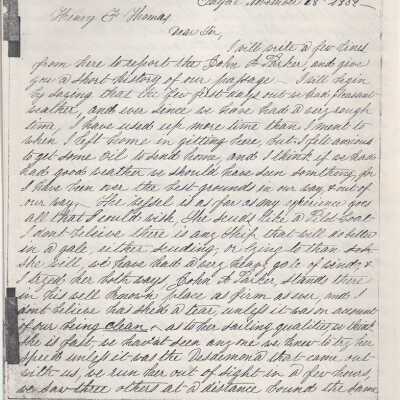 Fayal November 28 - 185
Henry F Thomas
Dear Sir,
I will write a few lines
from here to report the John A Parker, and give
you a short history of our passage I will begin
by saying that the few first days out we had pleasant
weather, and ever since we have had a very rough
time, I have used up more time than I ment to
when I left home in getting here, but I felt anxious
to get some Oil to send home, and I think if we had
had good weather we should have seen somthing, for
I have been over the best grounds in our way & out of
our way, The vessel is as far as my experience goes
all that I could wish, She scuds like a Pilot Boat
I dont beleive there is any Ship that will do better
in a gale, either scuding, or lying to than
She will, we have had a very heavy gale of wind, &
I tryed her both ways John A Parker, stands there
in his well known place as firm as ever, and I
dont beleive has shed a tear, unless it was on account
of our being clean, as to her sailing qualities we think
she is fast, we hav'nt seen any one we knew to try her
speed unless it was the Desdemona that came out
with us, we run her out of sight in a few hours,
we saw three others at a distance bound the same